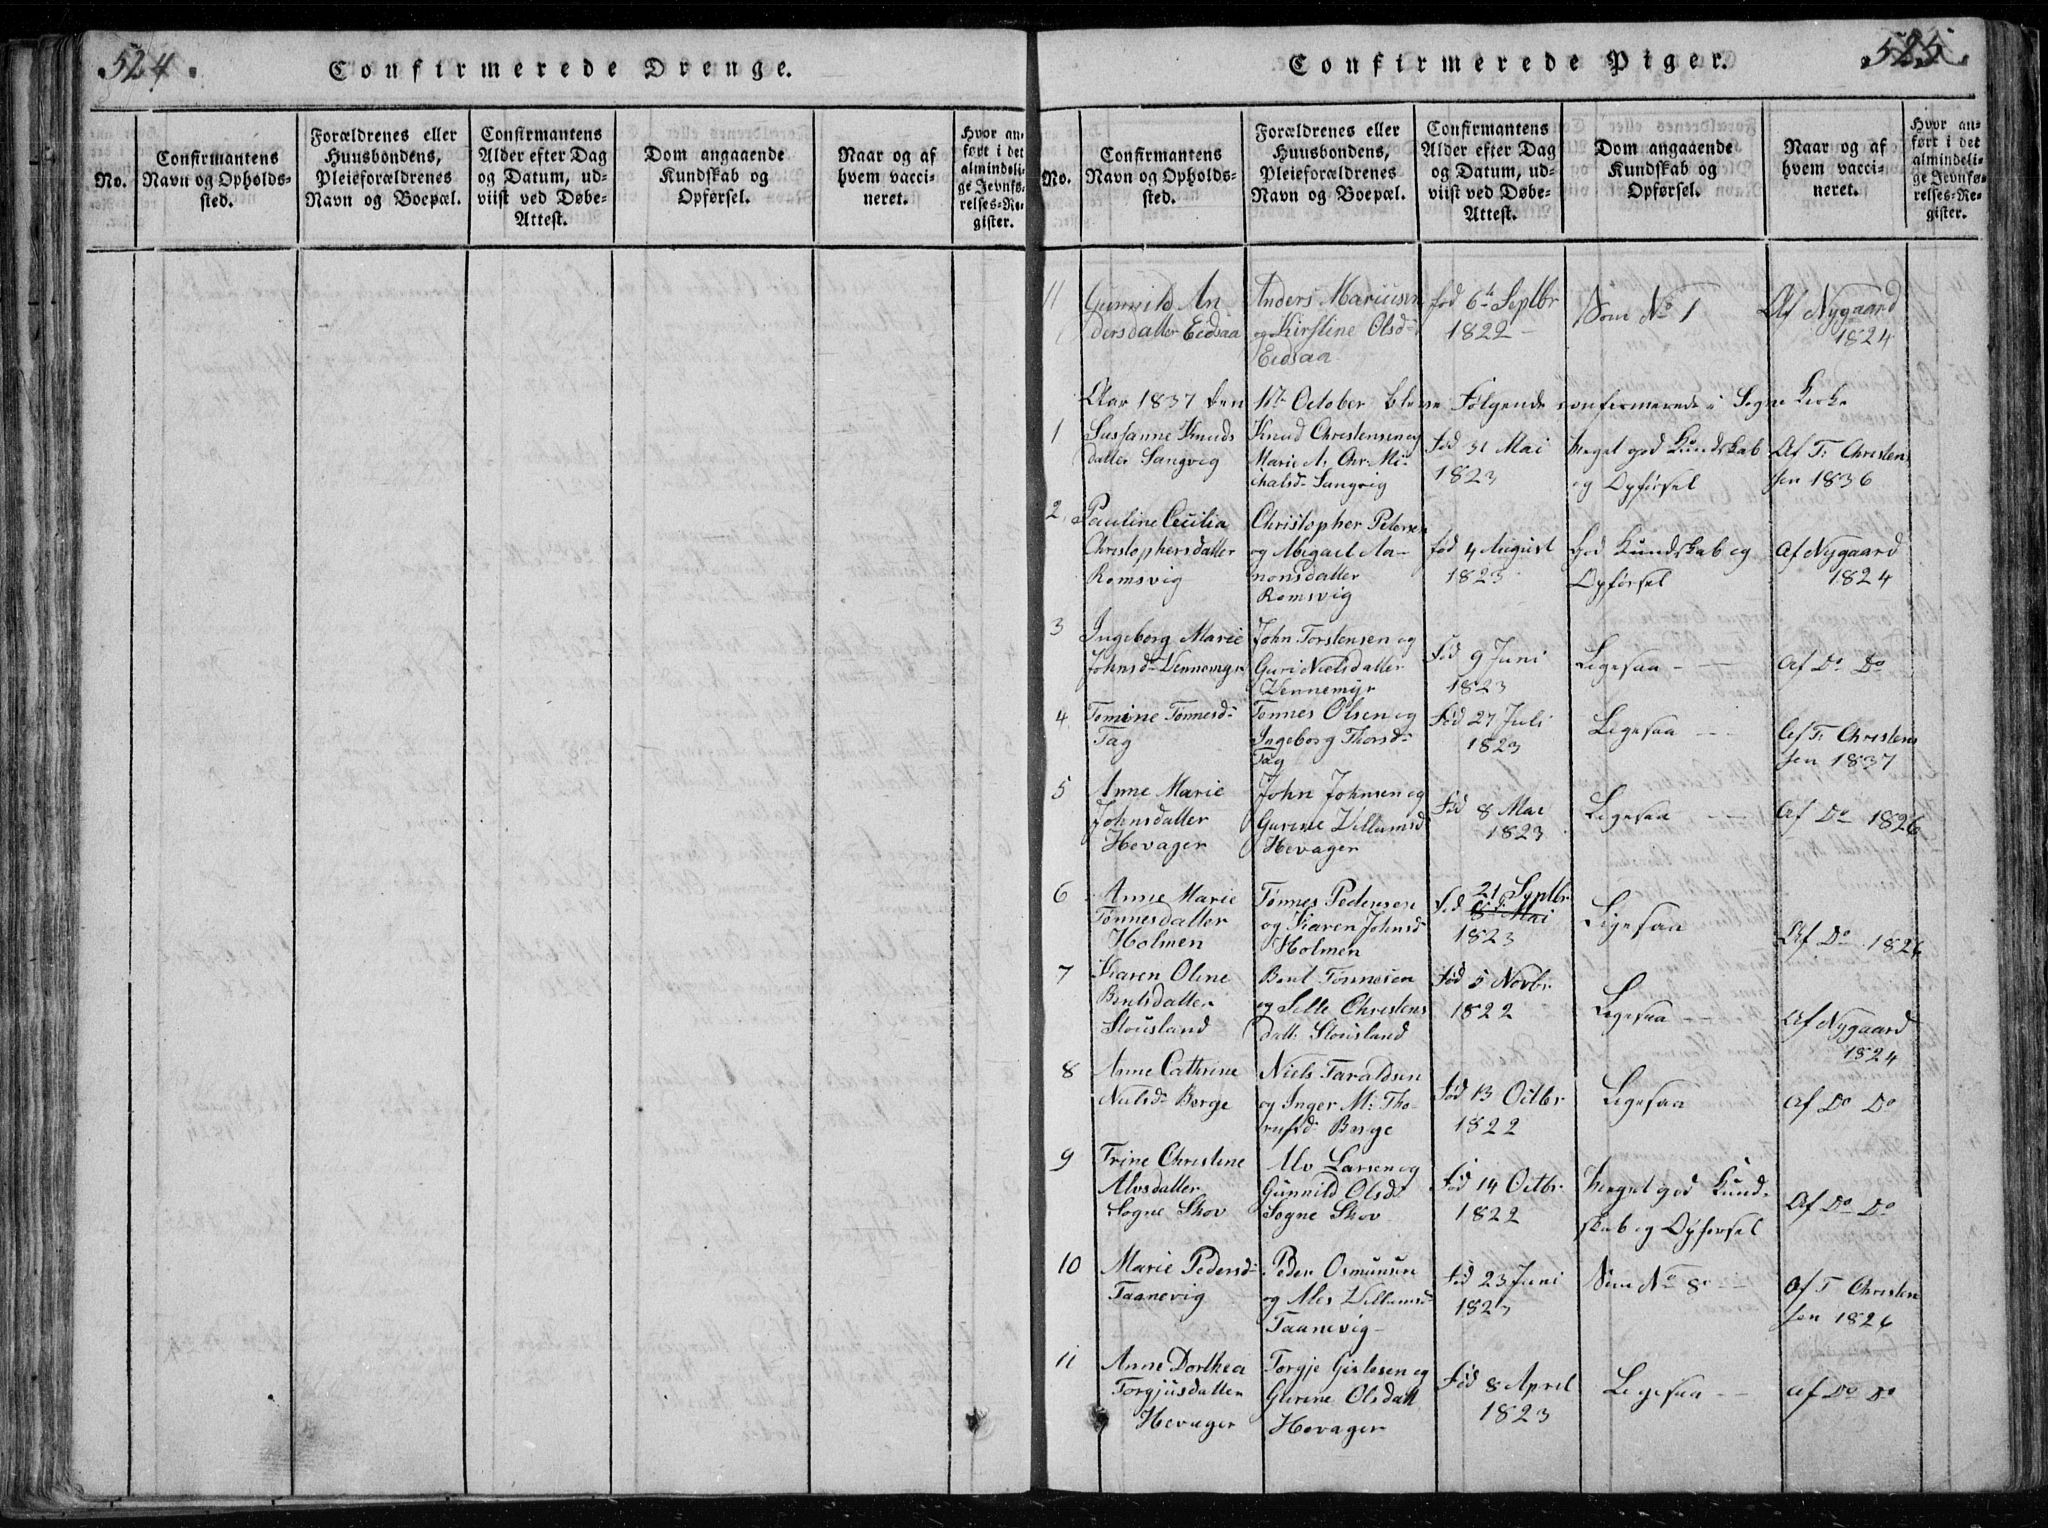 524.
Confirmerede Drenge.
No.
Confirmantens
Navn og Opholds-
sted.
Forældrenes eller
Huusbondens,
Pleieforældrenes
Navn og Boepæl.
Confirmantens
Alder efter Dag
og Datum, ud-
viist ved Døbe-
Attest.
Dom angaaende
Kundskab og
Opførsel.
Naar og af
hvem vacci-
neret.
Hvor an-
ført i det
almindeli-
ge Jevnfø-
relses-Re-
gister.
525.
Confirmerede Piger.
No.
Confirmantens
Navn og Opholds-
sted.
Forældrenes eller
Huusbondens,
Pleieforældrenes
Navn og Boepæl.
Confirmantens
Alder efter Dag
og Datum, ud-
viist ved Døbe-
Attest.
Dom angaaende
Kundskab og
Opførsel.
Naar og af
hvem vacci-
neret.
Hvor an-
ført i det
almindeli-
ge Jevnfø-
relses-Re-
gister.
11
Gunnild An
dersdatter Eidsaa
Anders Mariusen
og Kirstine Olsd-
Eidsaa
fød 6te Septbr
1822 -
Som No 1
Af Nygaard
1824
Aar 1837 den 1te October bleve Følgende confirmerede i Sogne Kirke
1
Sussanne Knuds
datter Langvig
Knud Christensen og
Marie A. Chr. Mi-
chalsd- Langvig
Fød 31 Mai
1823
Meget god Kundskab
og Opførsel
Af T. Christen
sen 1836
2.
Pauline Cecilia
Christophersdatter
Romsvig
Christopher Petersen
og Abigael Aa-
nonsdatter
Romsvig
fød 4 August
1823
God Kundskab og
Opførsel
Af Nygaard
1824
3
Ingeborg Marie
Johnsd- Vennemyr
John Torstensen og
Guri Nielsdatter
Vennemyr
Fød 9 Juni
1823
Ligesaa - -
Af Do Do
4
Tomine Tønnesd-
Tag
Tønnes Olsen og
Ingeborg Thorsd-
Tag
Fød 27 Juli
1823
Ligesaa - -
Af T. Christen
sen 1837
5
Anne Marie
Johnsdatter
Hevager
John Johnsen og
Gurine Villumsd
Hevager
Fød 8 Mai
1823
Ligesaa - -
Af Do 1826
6
Anne Marie
Tønnesdatter
Holmen
Tønnes Pedersen
og Karen Johnsd
Holmen
21 Septbr
Fød 8de Mai
1823
Ligesaa
Af Do 1826
7
Karen Oline
Bentsdatter
Stousland
Bent Tønnesen
og Sille Christens
datt. Stousland
Fød 5 Novbr
1822
Ligesaa - -
Af Nygaard
1824
8
Anne Cathrine
Nielsd- Borge
Niels Taraldsen
og Inger M. Tho-
Borge
Fød 13 Octbr
1822
Ligesaa
Af Do Do
9
Trine Christine
Alvsdatter
Sogne Skov
Alv Larsen og
Gunnild Olsd-
Sogne Skov
Fød 14 Octbr.
1822
Meget god Kund-
skab og Opførsel
Af Do Do
10
Marie Pedersd-
Taanevig
Peder Osmunsen
og Ales Villumsd-
Taanevig -
Fød 23 Juni
1823
Som No 8 -
Af T Christen
sen 1826
11
Anne Dorthea
Torgjusdatter
Hevager
Torgje Gislesen og
Gurine Olsdatt
Hevager
Fød 8 April
1823
Ligesaa - -
Af Do Do